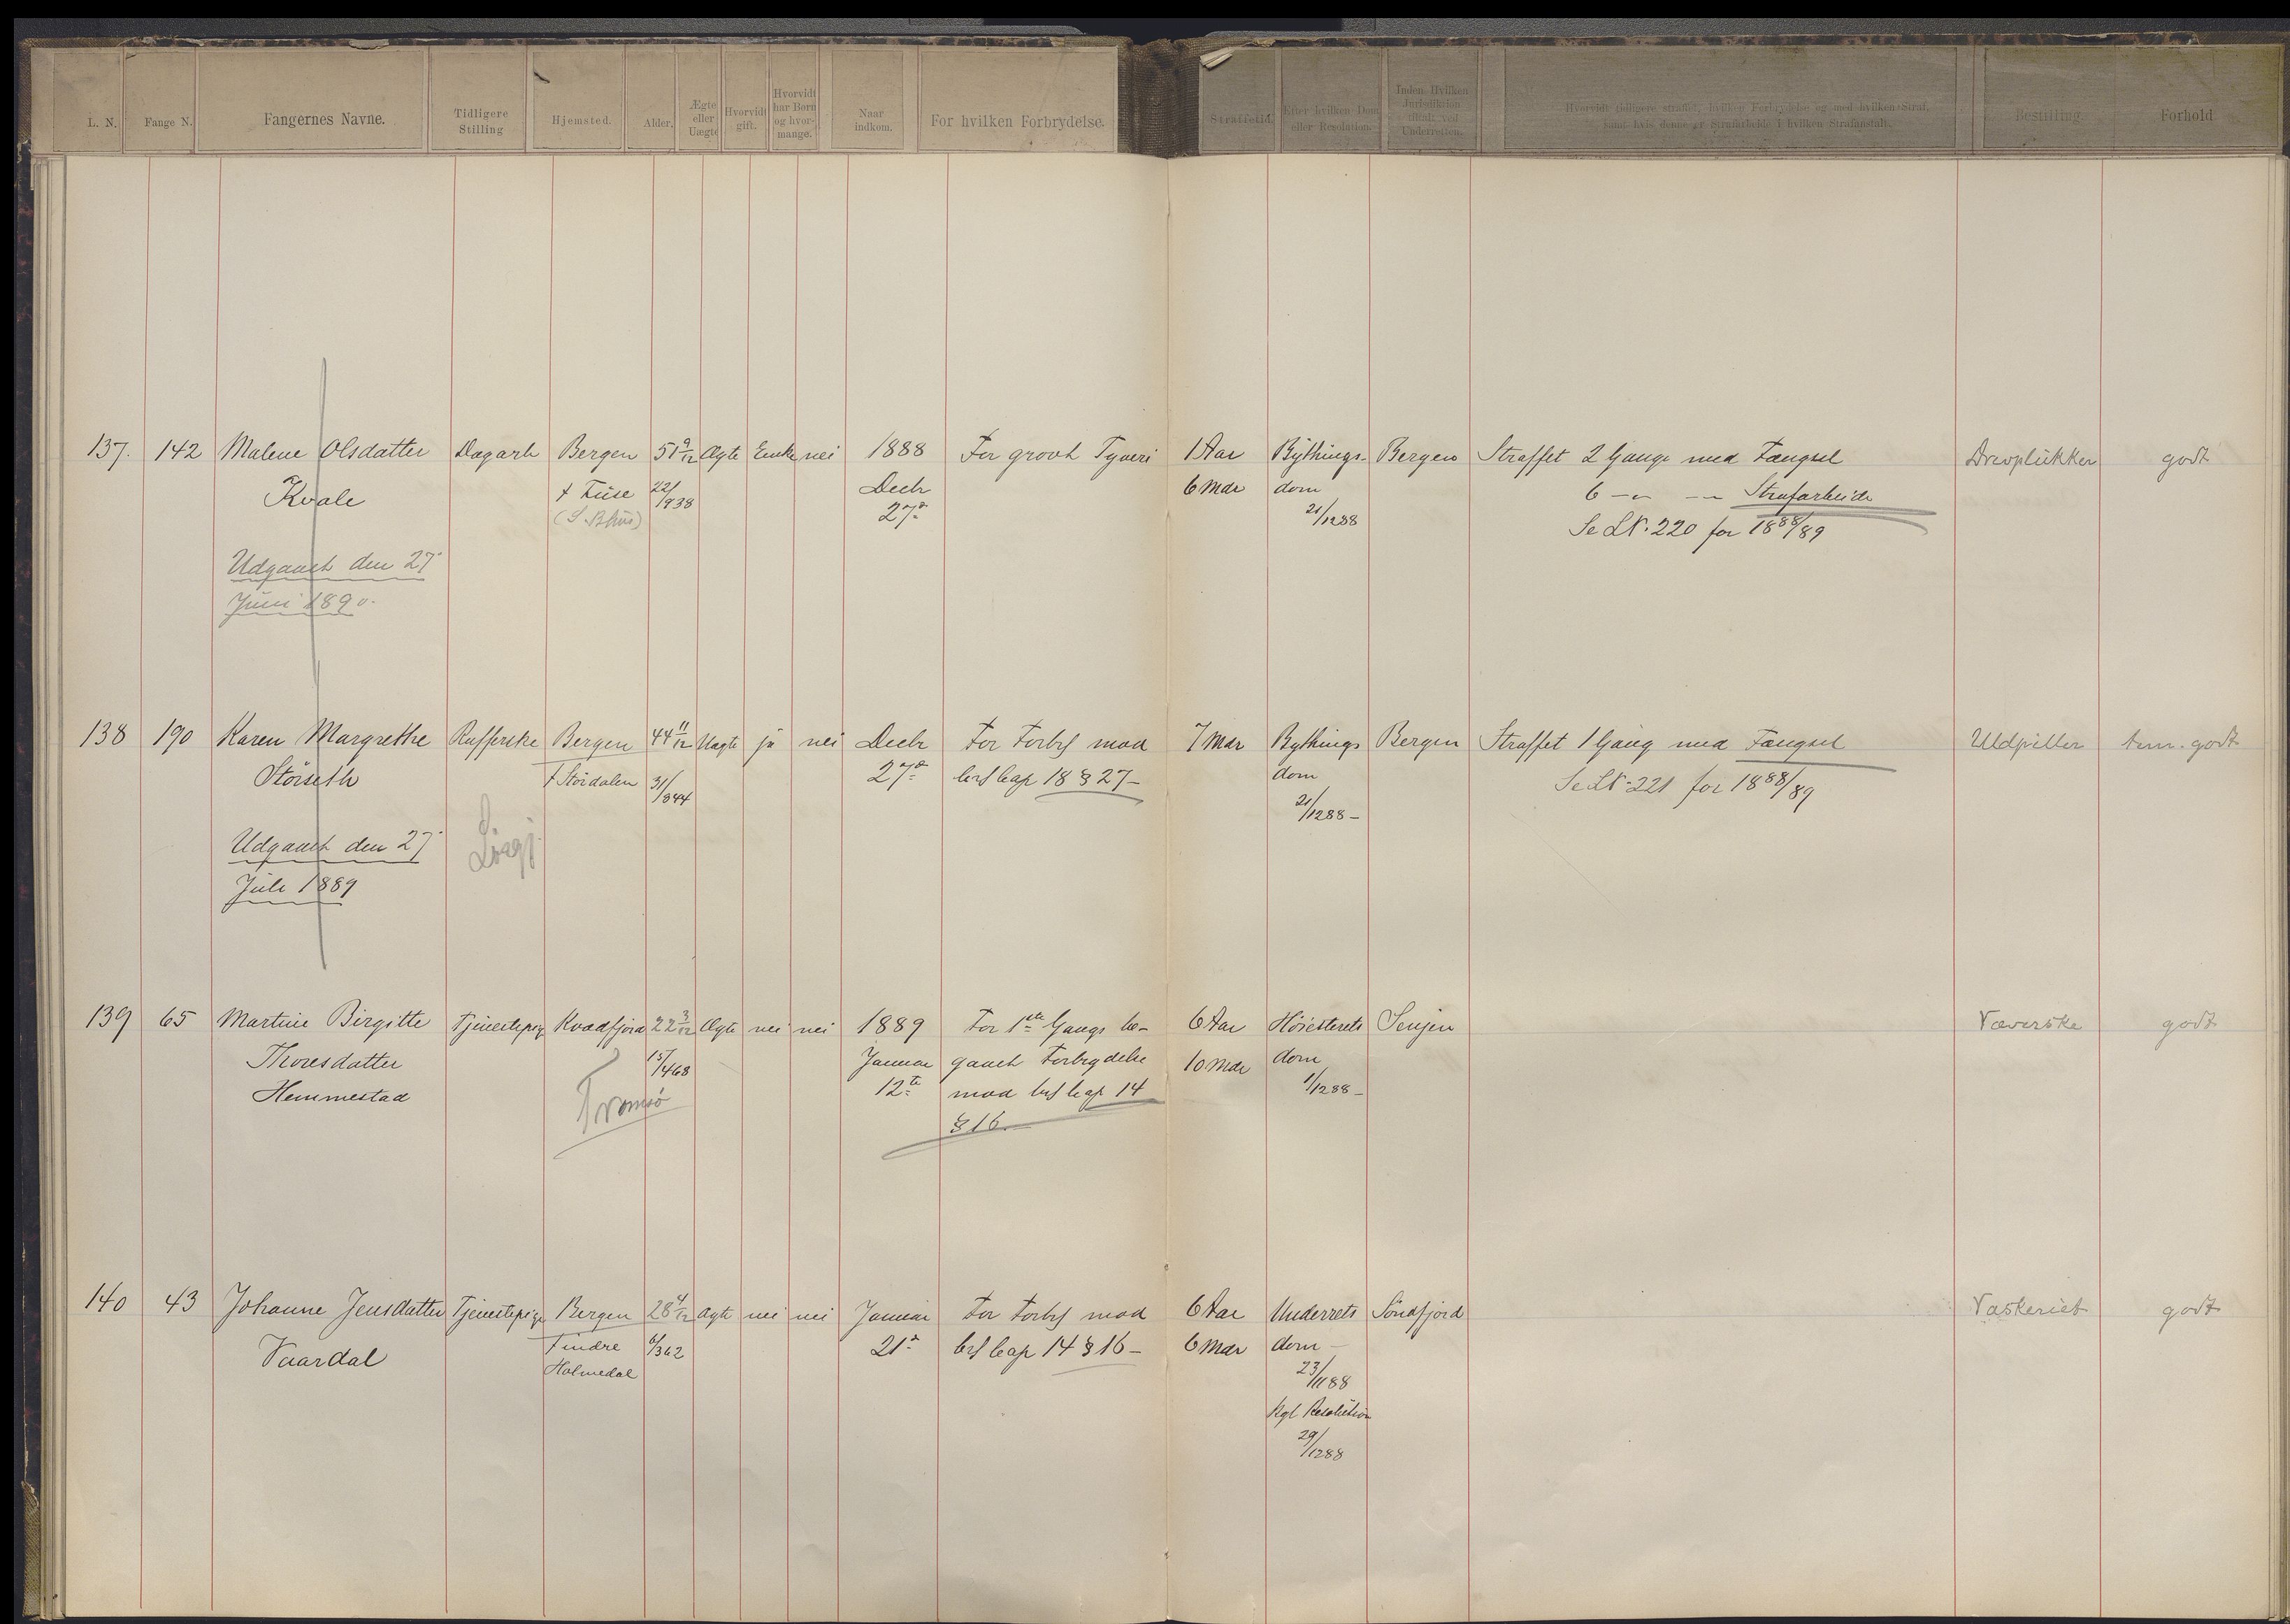 L. N. Fange N. Fangernes Navne. Tidligere Stilling Hjemsted. Alder. Ægte eller Uægte Hvorvidt gift. Hvorvidt har Børn og hvormange. Naar indkom. For hvilken Forbrydelse. Straffetid. Efter hvilken Dom eller Resolution. Inden Hvilken Jurisdiktion tiltalt ved Underretten. Hvorvidt tidligere straffet, hvilken Forbrydelse og med hvilken Straf, samt hvis denne er Strafarbeide i hvilken Strafanstalt. Bestilling. Forhold
137. 142 Malene Olsdatter Dagarb Bergen 51 9/12 Ægte Enke nei 1888 For grovt Tyveri 1 Aar Bythings- Bergen Straffet 2 Gange med Fængsel Drevplukker godt
Kvale f Fuse 22/938 Decbr 6 Mdr dom 6 –"– –"– Strafarbeide
(S. Bhus) 27de 21/1288 Se LN. 220 for 1888/89
Udgaaet den 27
Juni 1890.
138 190 Karen Margrethe Rufferske Bergen 44 11/12 Uægte ja nei Decbr For Forbr mod 7 Mdr Bythings Bergen Straffet 1 Gang med Fængsel Uldpiller tem. godt
Störseth f Stördalen 31/344 27de Lrs Cap 18 § 27 – dom Se LN. 221 for 1888/89
21/1288 –
Udgaaet den 27
Juli 1889
139 65 Martine Birgitte Tjenestepig Kvædfjord 22 3/12 Ægte nei nei 1889 For 1ste Gangs be- 6 Aar Höiesterets Senjen Væverske godt
Thoresdatter 15/468 Januar gaaet Forbrydelse 10 Mdr dom
Hemmestad Tromsö 12te mod Lrs Cap 14 1/1288 –
§ 16.
140 43 Johanne Jensdatter Tjenestepige Bergen 28 4/12 Ægte nei nei Januar For Forbr mod 6 Aar Underrets Söndfjord Vaskeriet godt
Vaardal f indre 6/362 21de Lrs Cap 14 § 16 – 6 Mdr dom –
Holmedal 23/1188
Kgl Resolution
29/1288